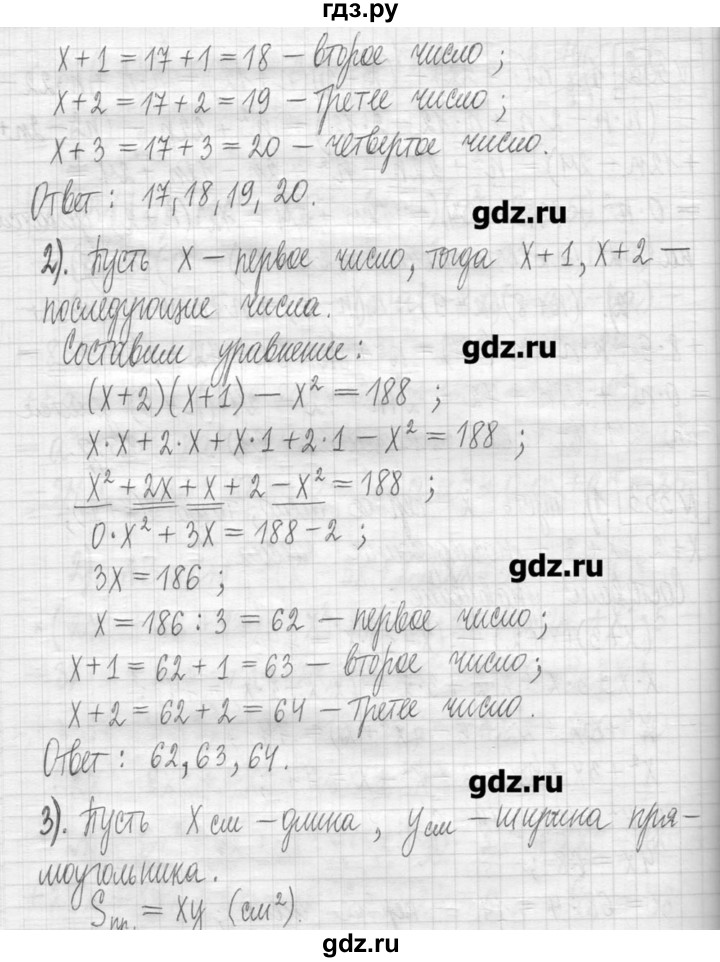 гдз.ру
x + 1 = 17 + 1 = 18 – второе число ;
x + 2 = 17 + 2 = 19 – третее число ;
x + 3 = 17 + 3 = 20 – четвертое число.
Ответ : 17, 18, 19, 20.
gdz.ru
2). Пусть x – первое число, тогда x + 1, x + 2 –
последующие числа.
Составим уравнение :
gdz.ru
(x + 2)(x + 1) – x² = 188 ;
x · x + 2 · x + x · 1 + 2 · 1 – x² = 188 ;
x² + 2x + x + 2 – x² = 188 ;
0 · x² + 3x = 188 – 2 ;
3x = 186 ;
gdz.ru
x = 186 : 3 = 62 – первое число ;
x + 1 = 62 + 1 = 63 – второе число ;
x + 2 = 62 + 2 = 64 – третее число .
Ответ : 62, 63, 64.
gdz.ru
3). Пусть x см – длина , y см – ширина пря-
моугольника .
Sпр. = xy (см²).
gdz.ru